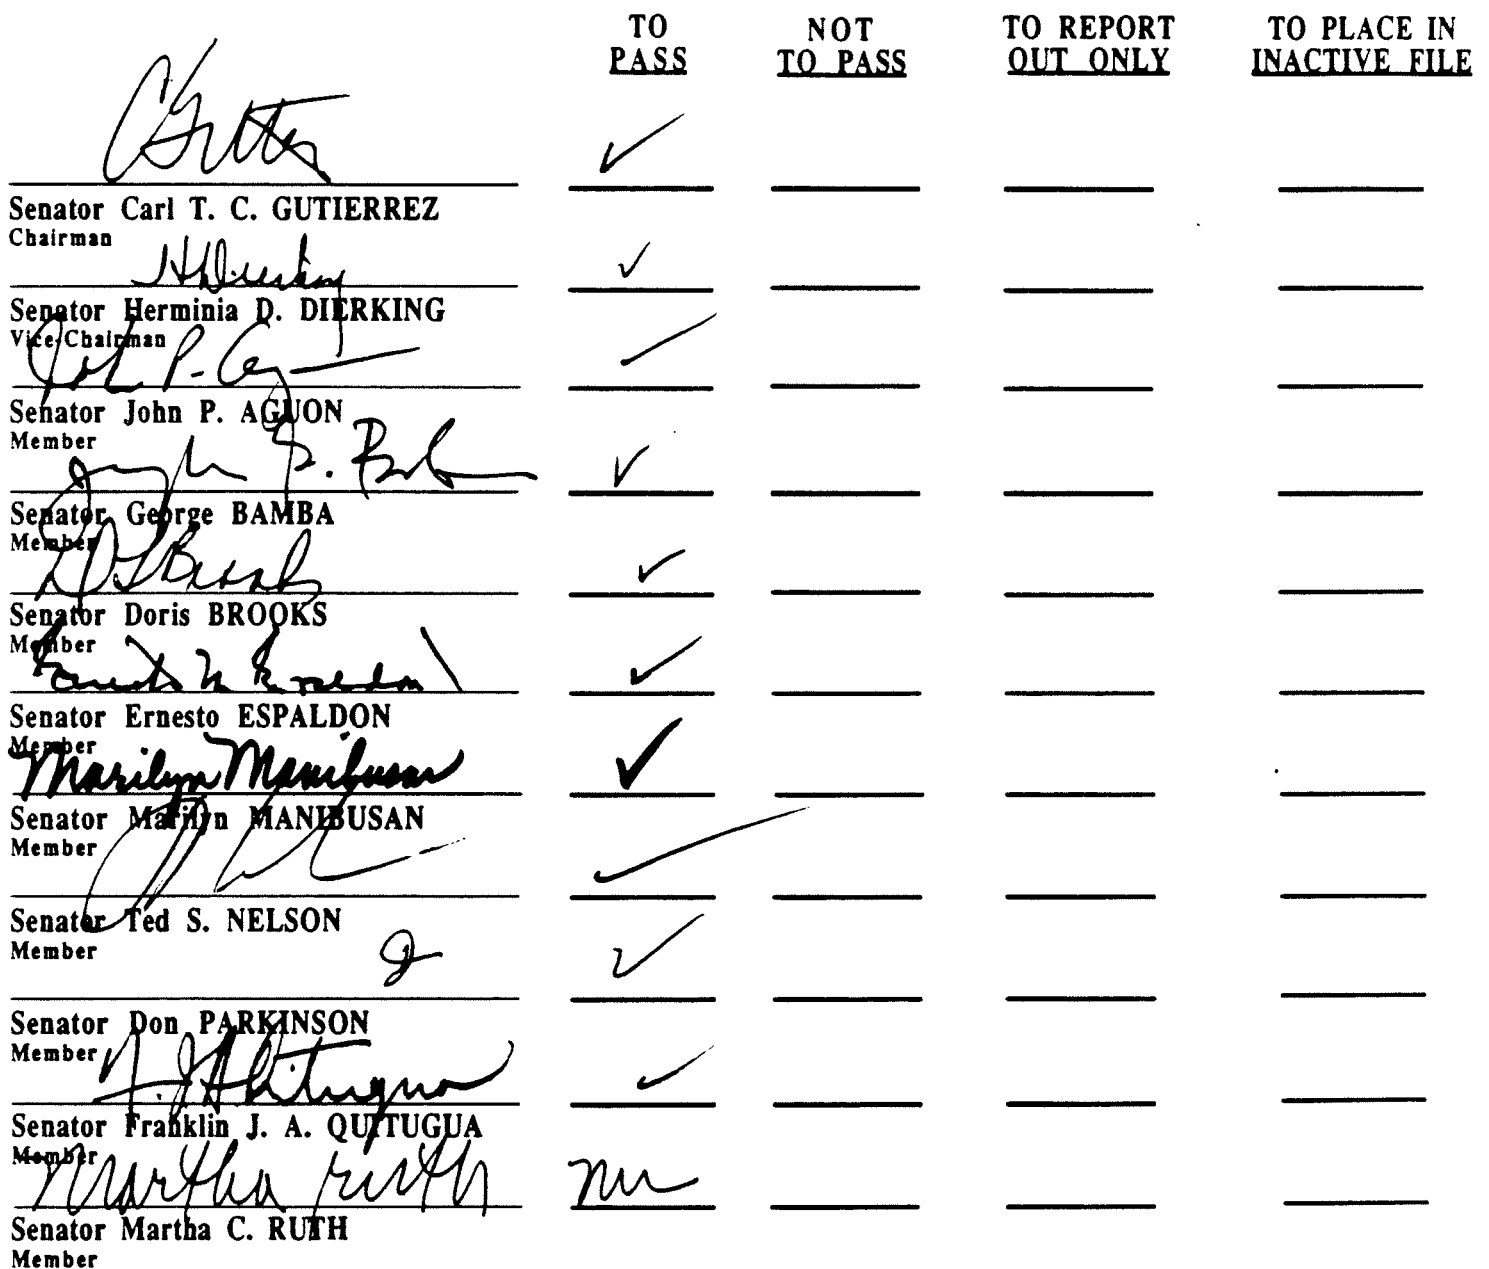 TO NOT TO REPORT TO PLACE IN
PASS TO PASS OUT ONLY INACTIVE FILE
✓
Senator Carl T. C. GUTIERREZ
Chairman
✓
Senator Herminia D. DIERKING
Vice-Chairman
John P. ✓
Senator John P. AGUON
Member
✓
Senator George BAMBA
Member
Brooks ✓
Senator Doris BROOKS
Member
✓
Senator Ernesto ESPALDON
Member
Marilyn Manibusan ✓
Senator Marilyn MANIBUSAN
Member
✓
Senator Ted S. NELSON
Member
✓
Senator Don PARKINSON
Member
F. J. A. Quitugua ✓
Senator Franklin J. A. QUITUGUA
Member
Martha Ruth
Senator Martha C. RUTH
Member